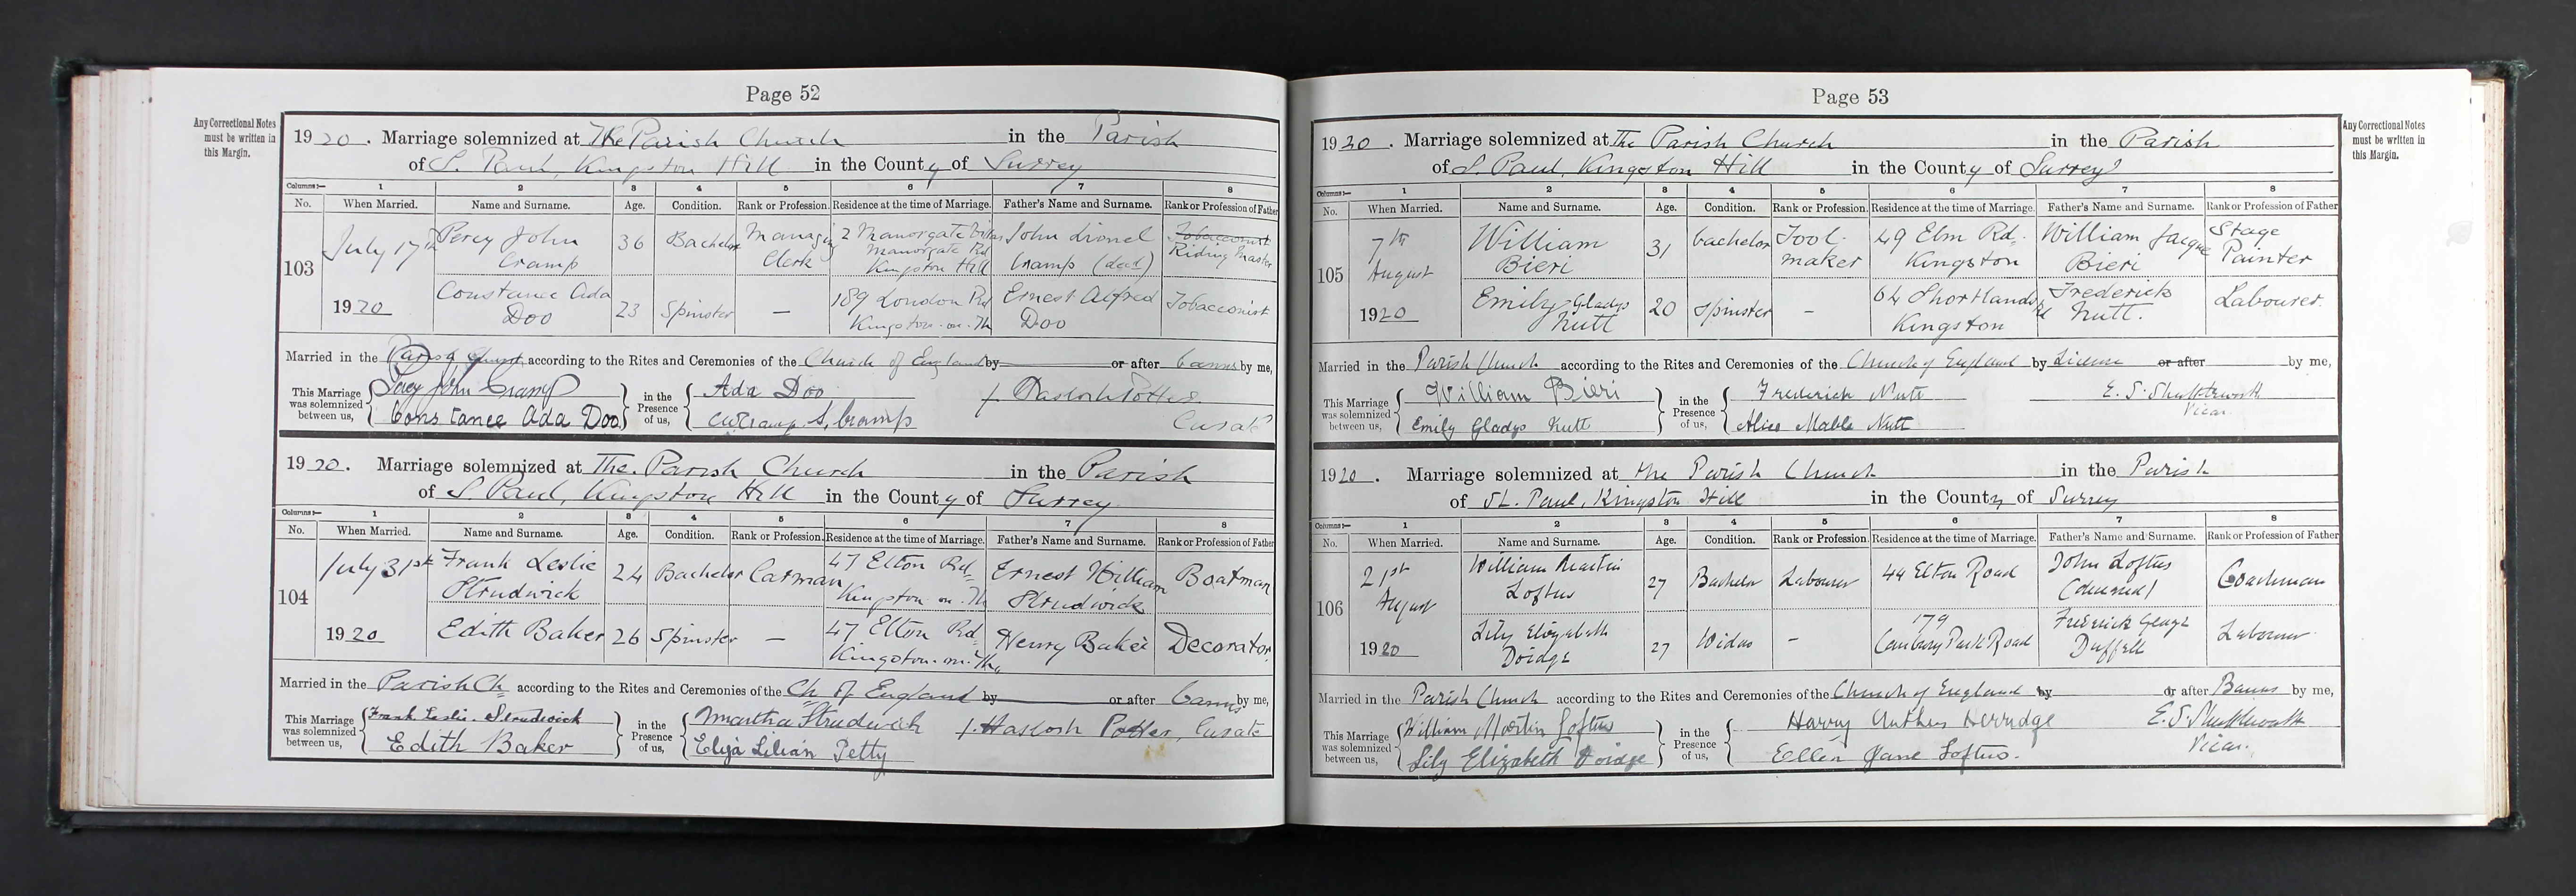 Page 52
Any Correctional Notes
must be written in
this Margin.
1920. Marriage solemnized at The Parish Church in the Parish
of S. Paul, Kingston Hill in the County of Surrey
Columns:— 1 2 3 4 5 6 7 8
No. When Married. Name and Surname. Age. Condition. Rank or Profession. Residence at the time of Marriage. Father's Name and Surname. Rank or Profession of Father
103 July 17th Percy John Cramp 36 Bachelor Managing Clerk 2 Manorgate Villas Manorgate Rd Kingston Hill John Lionel Cramp (decd) Tobacconist Riding Master
1920 Constance Ada Doo 23 Spinster — 189 London Rd Kingston-on-Th Ernest Alfred Doo Tobacconist
Married in the Parish Church according to the Rites and Ceremonies of the Church of England by or after banns by me,
This Marriage was solemnized between us, Percy John Cramp Constance Ada Doo in the Presence of us, Ada Doo S. Cramp Potter Curate
1920. Marriage solemnized at The Parish Church in the Parish
of S. Paul, Kingston Hill in the County of Surrey
Columns:— 1 2 3 4 5 6 7 8
No. When Married. Name and Surname. Age. Condition. Rank or Profession. Residence at the time of Marriage. Father's Name and Surname. Rank or Profession of Father
104 July 31st Frank Leslie Strudwick 24 Bachelor Carman 47 Elton Rd, Kingston-on-Th Ernest William Strudwick Boatman
1920 Edith Baker 26 Spinster — 47 Elton Rd Kingston-on-Th Henry Baker Decorator
Married in the Parish Ch according to the Rites and Ceremonies of the Ch of England by or after banns by me,
This Marriage was solemnized between us, Frank Leslie Strudwick Edith Baker in the Presence of us, Martha Strudwick Eliza Lilian Petty Potter, Curate
Page 53
Any Correctional Notes
must be written in
this Margin.
1920. Marriage solemnized at The Parish Church in the Parish
of S. Paul, Kingston Hill in the County of Surrey
Columns:— 1 2 3 4 5 6 7 8
No. When Married. Name and Surname. Age. Condition. Rank or Profession. Residence at the time of Marriage. Father's Name and Surname. Rank or Profession of Father
105 7th August William Bieri 31 bachelor Tool maker 49 Elm Rd. Kingston William Jacque Bieri Stage Painter
1920 Emily Gladys Nutt 20 Spinster - 64 Shortlands Rd Kingston Frederick Nutt. Labourer.
Married in the Parish Church according to the Rites and Ceremonies of the Church of England by License or after by me,
This Marriage was solemnized between us, William Bieri Emily Gladys Nutt in the Presence of us, Frederick Nutt Alice Mable Nutt E. S. Shuttleworth Vicar
1920. Marriage solemnized at the Parish Church in the Parish
of St. Paul, Kingston Hill in the County of Surrey
Columns:— 1 2 3 4 5 6 7 8
No. When Married. Name and Surname. Age. Condition. Rank or Profession. Residence at the time of Marriage. Father's Name and Surname. Rank or Profession of Father
106 21st August William Martin Loftus 27 Bachelor Labourer 44 Elton Road John Loftus (deceased) Coachman
1920 Lily Elizabeth Doidge 27 Widow - 179 Canbury Park Road Frederick George Duffell Labourer
Married in the Parish Church according to the Rites and Ceremonies of the Church of England by or after Banns by me,
This Marriage was solemnized between us, William Martin Loftus Lily Elizabeth Doidge in the Presence of us, Harry Arthur Herridge Ellen Jane Loftus. E. S. Shuttleworth Vicar.